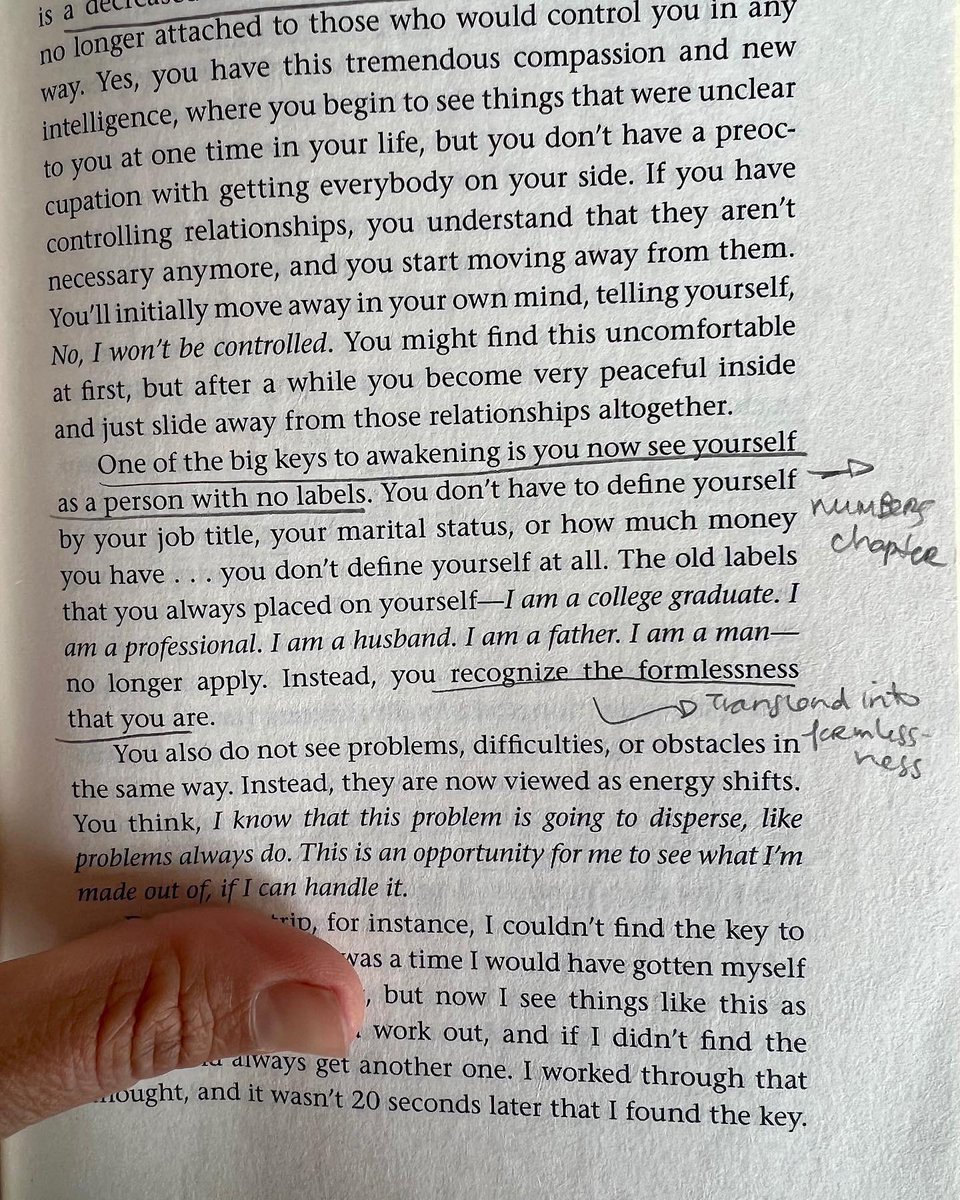 is a decreased
no longer attached to those who would control you in any
way. Yes, you have this tremendous compassion and new
intelligence, where you begin to see things that were unclear
to you at one time in your life, but you don't have a preoc-
cupation with getting everybody on your side. If you have
controlling relationships, you understand that they aren't
necessary anymore, and you start moving away from them.
You'll initially move away in your own mind, telling yourself,
No, I won't be controlled. You might find this uncomfortable
at first, but after a while you become very peaceful inside
and just slide away from those relationships altogether.
One of the big keys to awakening is you now see yourself
as a person with no labels. You don't have to define yourself
by your job title, your marital status, or how much money
you have . . . you don't define yourself at all. The old labels
that you always placed on yourself—I am a college graduate. I
am a professional. I am a husband. I am a father. I am a man—
no longer apply. Instead, you recognize the formlessness
that you are.
You also do not see problems, difficulties, or obstacles in
the same way. Instead, they are now viewed as energy shifts.
You think, I know that this problem is going to disperse, like
problems always do. This is an opportunity for me to see what I'm
made out of, if I can handle it.
trip, for instance, I couldn't find the key to
was a time I would have gotten myself
, but now I see things like this as
work out, and if I didn't find the
always get another one. I worked through that
thought, and it wasn't 20 seconds later that I found the key.
numbers
chapter
Transcend into
formless-
ness